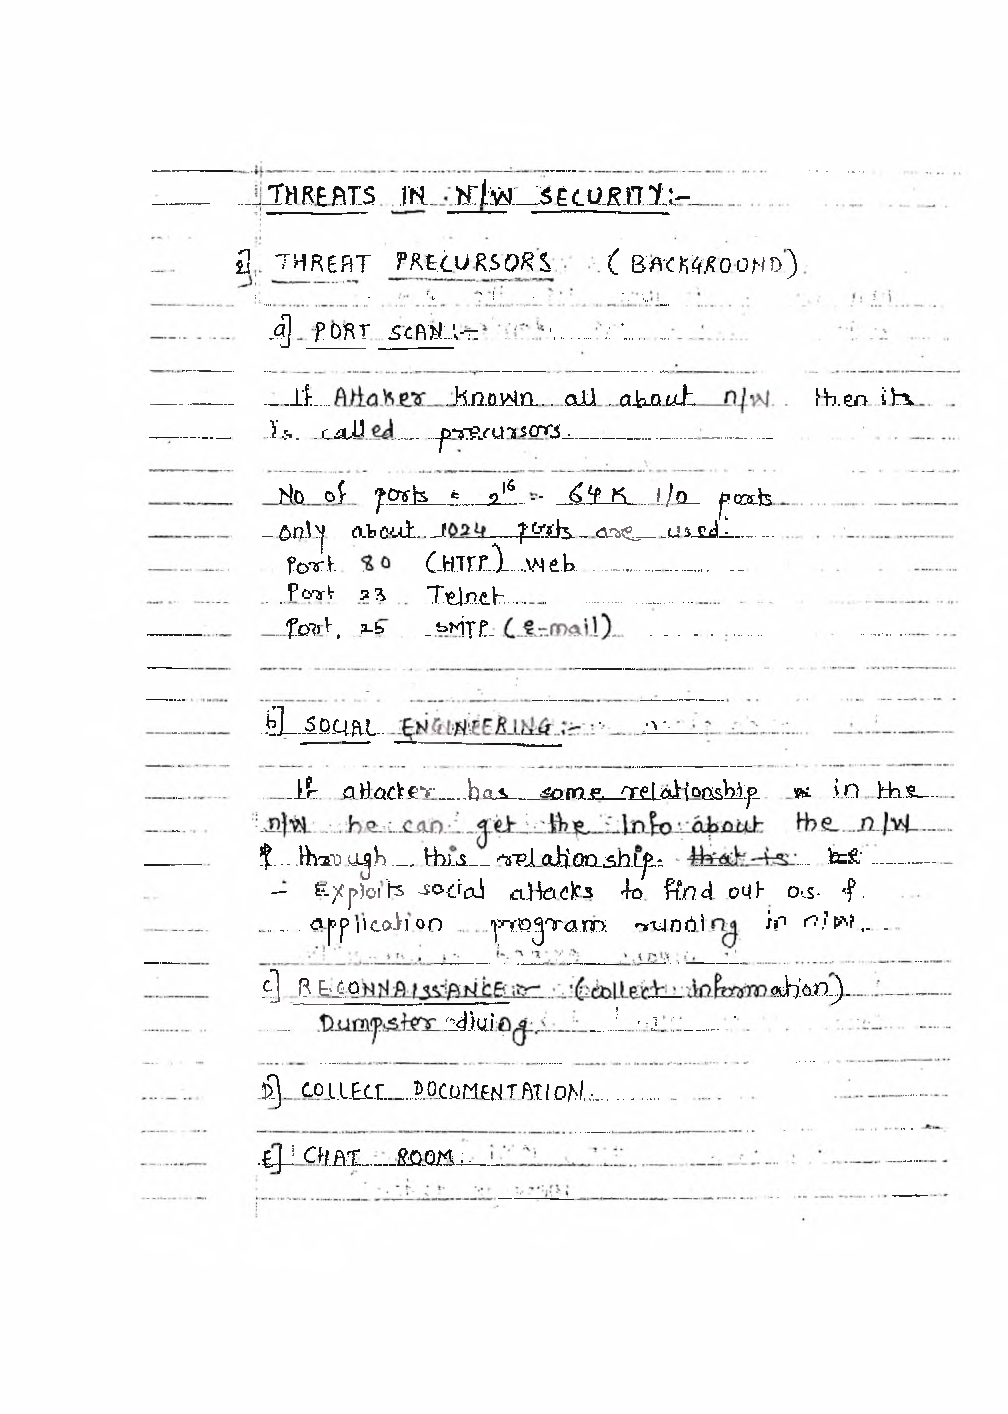 THREATS IN N/W SECURITY:-
1] THREAT PRECURSORS (BACKGROOND)
a] PORT SCAN :-
If Attaker Known all about n/w then its
is called precursors.
No of ports = 2^16 = 64 K I/O ports
only about 1024 ports are used.
Port 80 (HTTP) web
Port 23 Telnet
Port. 25 SMTP (e-mail)
b] SOCIAL ENGINEERING :-
If attacker has some relationship in the
n/w he can get the Info about the n/w
& through this relationship.
- Exploits social attacks to find out o.s. &
application program running in n/w.
c] RECONNAISSANCE :- (collect information)
Dumpster diving.
D] COLLECT DOCUMENTATION.
E] CHAT ROOM.